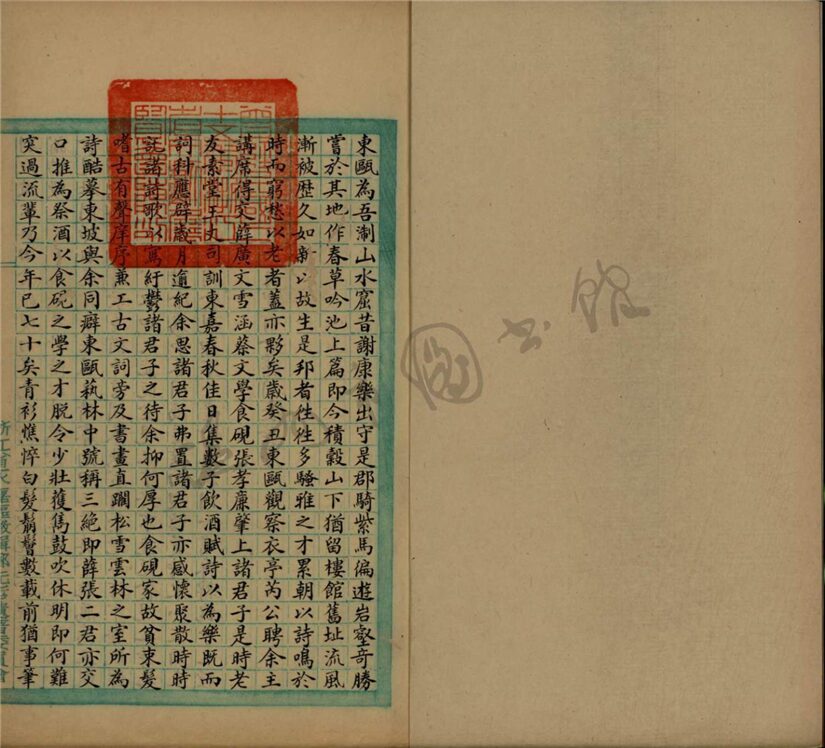 東甌為吾淛山水窟昔謝康樂出守是郡騎紫馬徧遊岩壑奇勝
嘗於其地作春草吟池上篇即今積穀山下猶留樓館舊址流風
漸被歴久如新以故生是邦者徃徃多騷雅之才累朝以詩鳴於
時而窮愁以老者蓋亦夥矣歲癸丑東甌觀察衣亭芮公聘余主
講席得交薛廣文雪涵蔡文學食硯張孝廉肇上諸君子是時老
友素堂王丈司訓東嘉春秋佳日集數子飲酒賦詩以為樂既而
詞科應辟歲月遒紀余思諸君子弗置諸君子亦感懷聚散時時
託諸詩歌以寫紆鬱諸君子之待余抑何厚也食硯家故貧束髮
嗜古有聲庠序兼工古文詞旁及書畫直躙松雪雲林之室所為
詩酷摹東坡與余同癖東甌蓺林中號稱三絶即薛張二君亦交
口推為祭酒以食硯之學之才脱令少壯獲雋鼓吹休明即何難
突過流輩乃今年已七十矣青衫憔悴白髮鬅鬙數載前猶事筆
圖書館